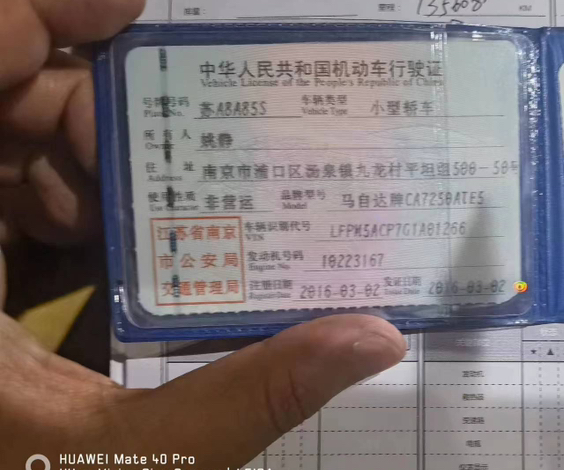 135600
KM
中华人民共和国机动车行驶证
Vehicle License of the People's Republic of China
号牌号码 苏A8A85S 车辆类型 小型轿车
Plate No. Vehicle Type
所有人 姚静
Owner
住址 南京市浦口区汤泉镇九龙村平坦组500-50号
Address
使用性质 非营运 品牌型号 马自达牌CA7250ATE5
Use Character Model
江苏省南京
市公安局
交通管理局
车辆识别代号 LFPM5ACP7G1A81266
VIN
发动机号码 10223167
Engine No.
注册日期 2016-03-02 发证日期 2016-03-02
Register Date Issue Date
发动机
变速器
电瓶
HUAWEI Mate 40 Pro